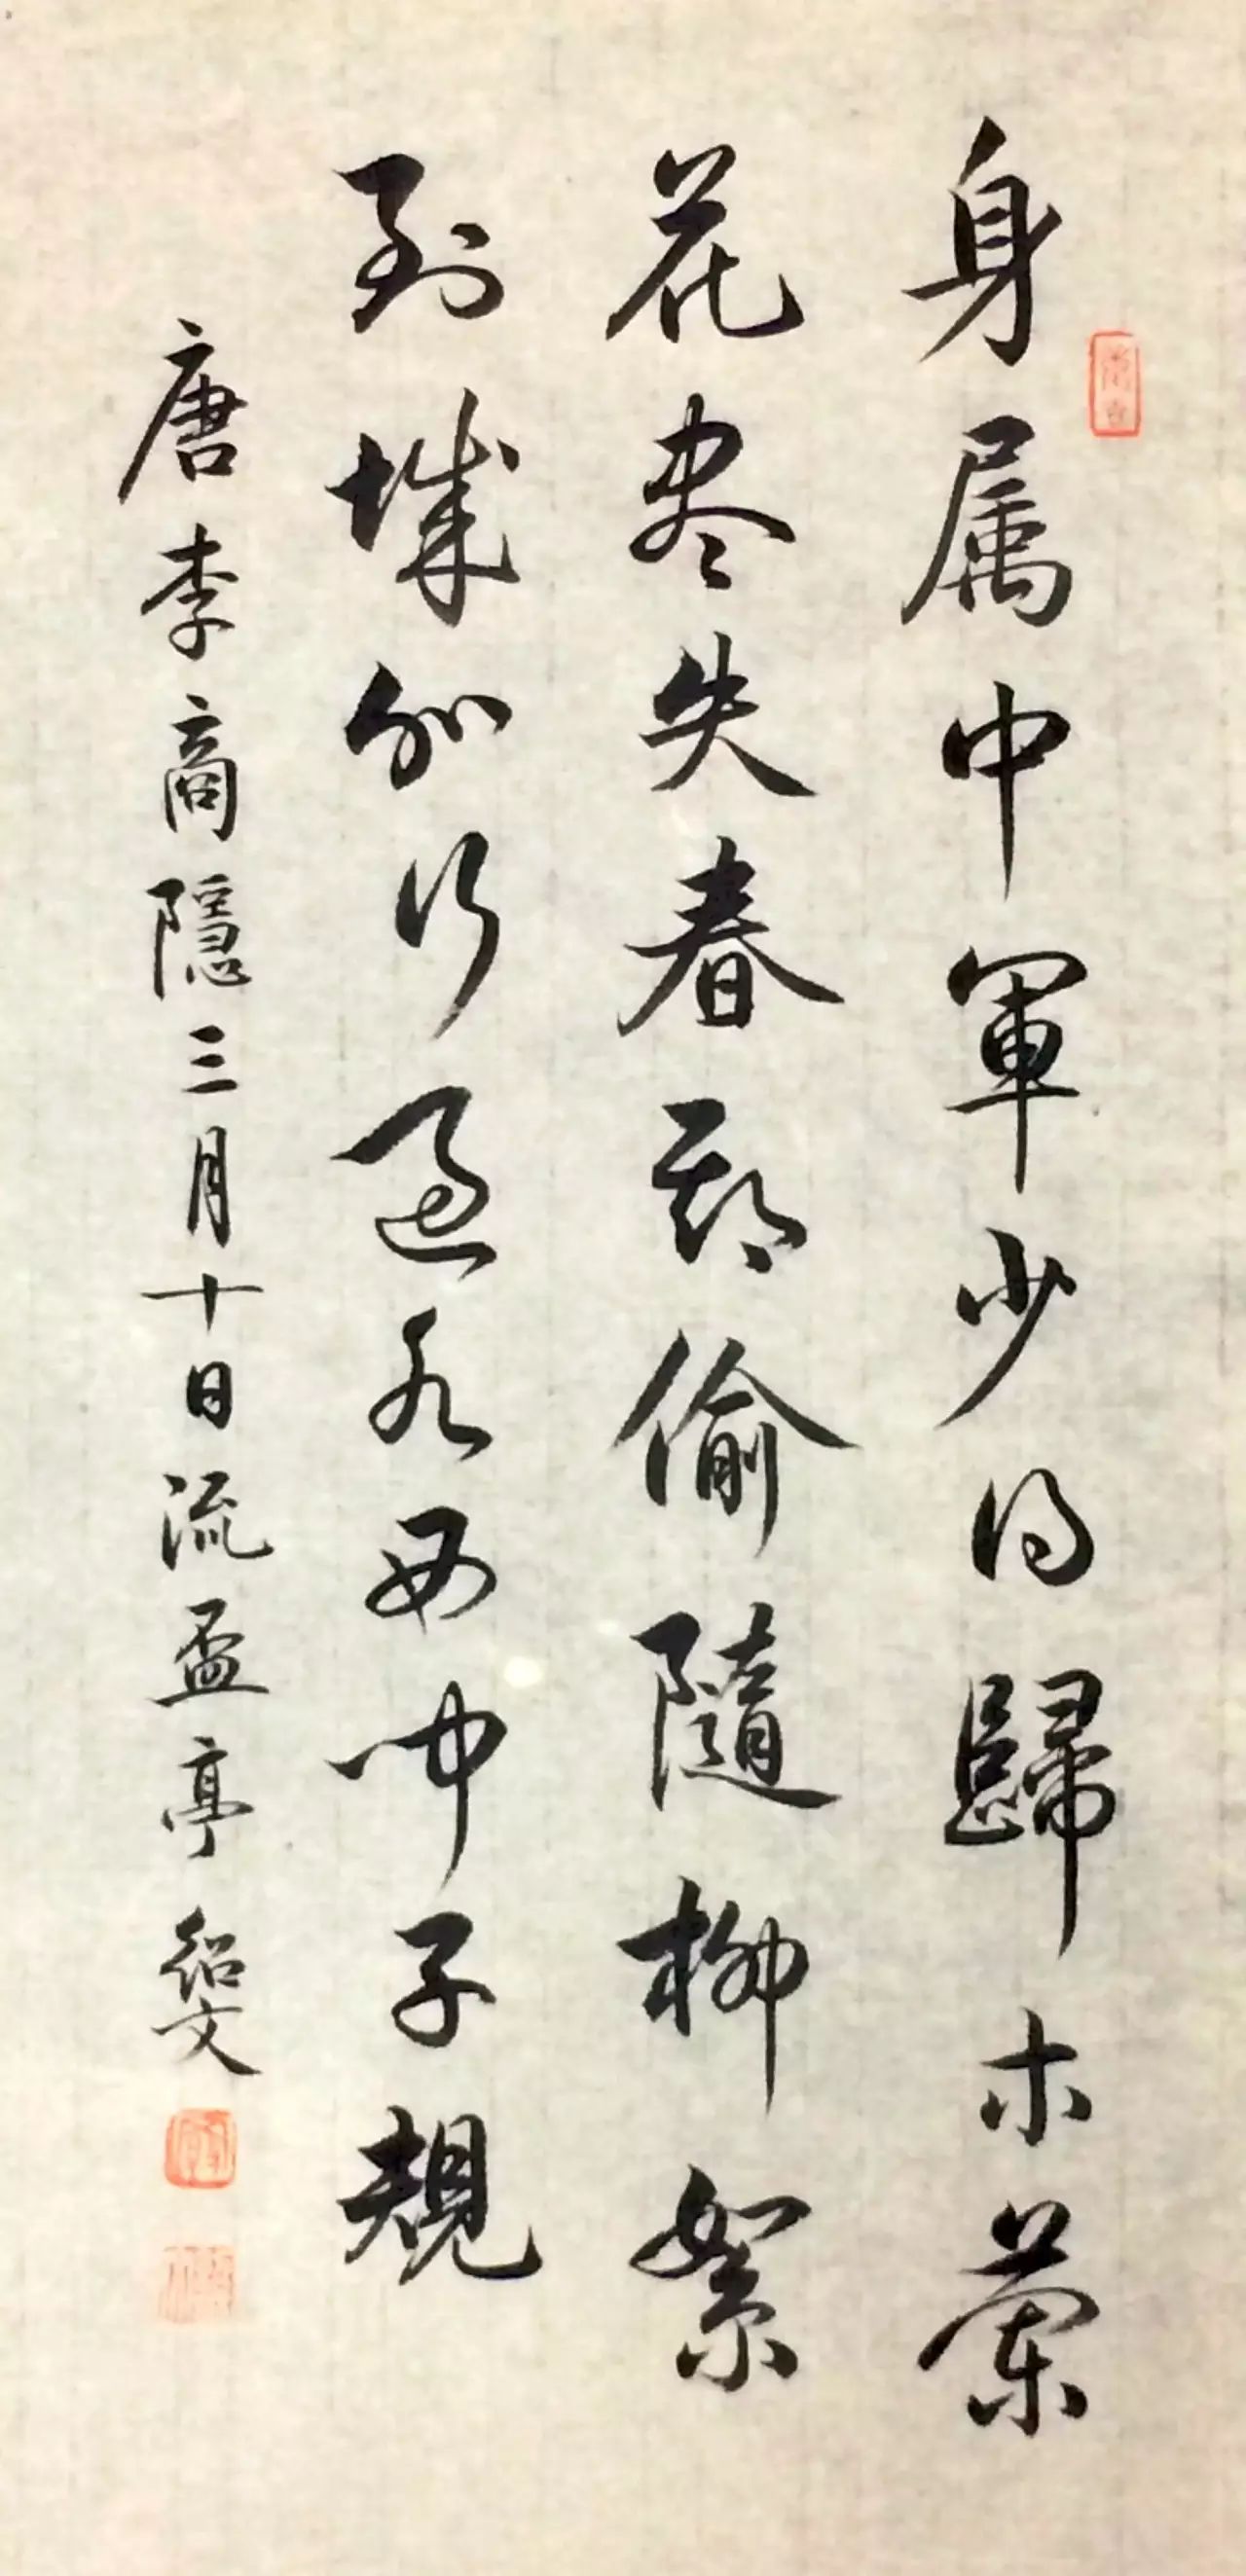 身属中軍少得歸木蘭
花盡失春期偷隨柳絮
到城外行過水西聞子規
唐李商隱三月十日流盃亭紹文